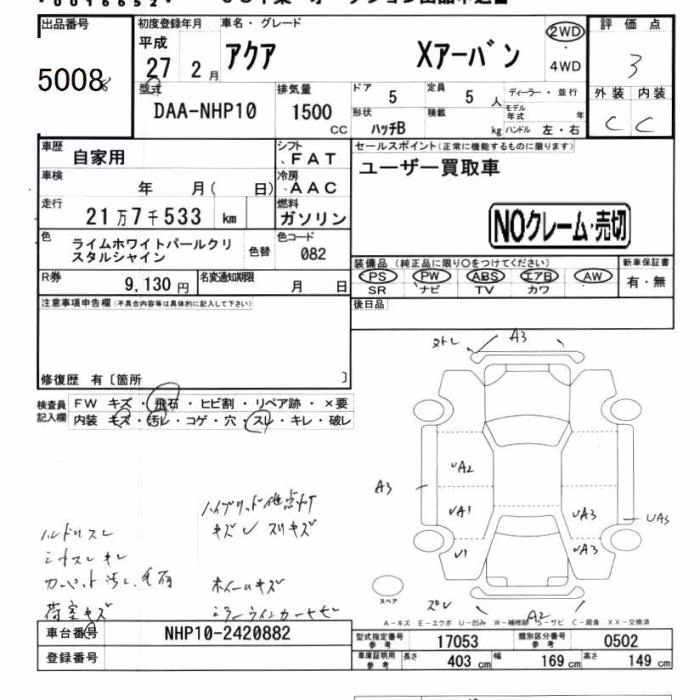 出品番号
5008
初度登録年月
平成
27 2月
車名・グレード
アクア Xアーバン
2WD
4WD
評価点
3
外装 内装
C C
型式
DAA-NHP10
排気量
1500
CC
ドア
5
定員
5 人
形状
ハッチB
積載
kg
ディーラー・並行
モデル年式 年
ハンドル 左・右
車歴
自家用
シフト
FAT
車検
年 月( 日)
冷房
AAC
走行
21万7千533 km
燃料
ガソリン
色
ライムホワイトパールクリ
スタルシャイン
色替
色コード
082
R券
9,130円
名変通知期限
月 日
セールスポイント(正常に機能するものに限ります)
ユーザー買取車
NOクレーム・売切
装備品(純正品に限り○をつけてください)
PS PW ABS エアB AW
SR ナビ TV カワ
新車保証書
有・無
後日品
注意事項申告欄(不具合内容等は具体的に記入して下さい)
修復歴 有〔箇所 〕
検査員
記入欄
FW キズ・飛石・ヒビ割・リペア跡・×要
内装 キズ・汚レ・コゲ・穴・スレ・キレ・破レ
A3
A3
UA2
UA1
U1
UA3
UA3
UA3
A2
ハイブリッド
キズ スリキズ
ハンドルスレ
シートスレ キレ
荷室キズ
ホイールキズ
スペア
A-キズ E-エクボ U-凹み W-補修跡 S-サビ C-腐食 XX-交換済
車台番号
NHP10-2420882
登録番号
型式指定番号
参考
17053
類別区分番号
参考
0502
車庫証明用
参考
長さ 403 cm
幅 169 cm
高さ 149 cm